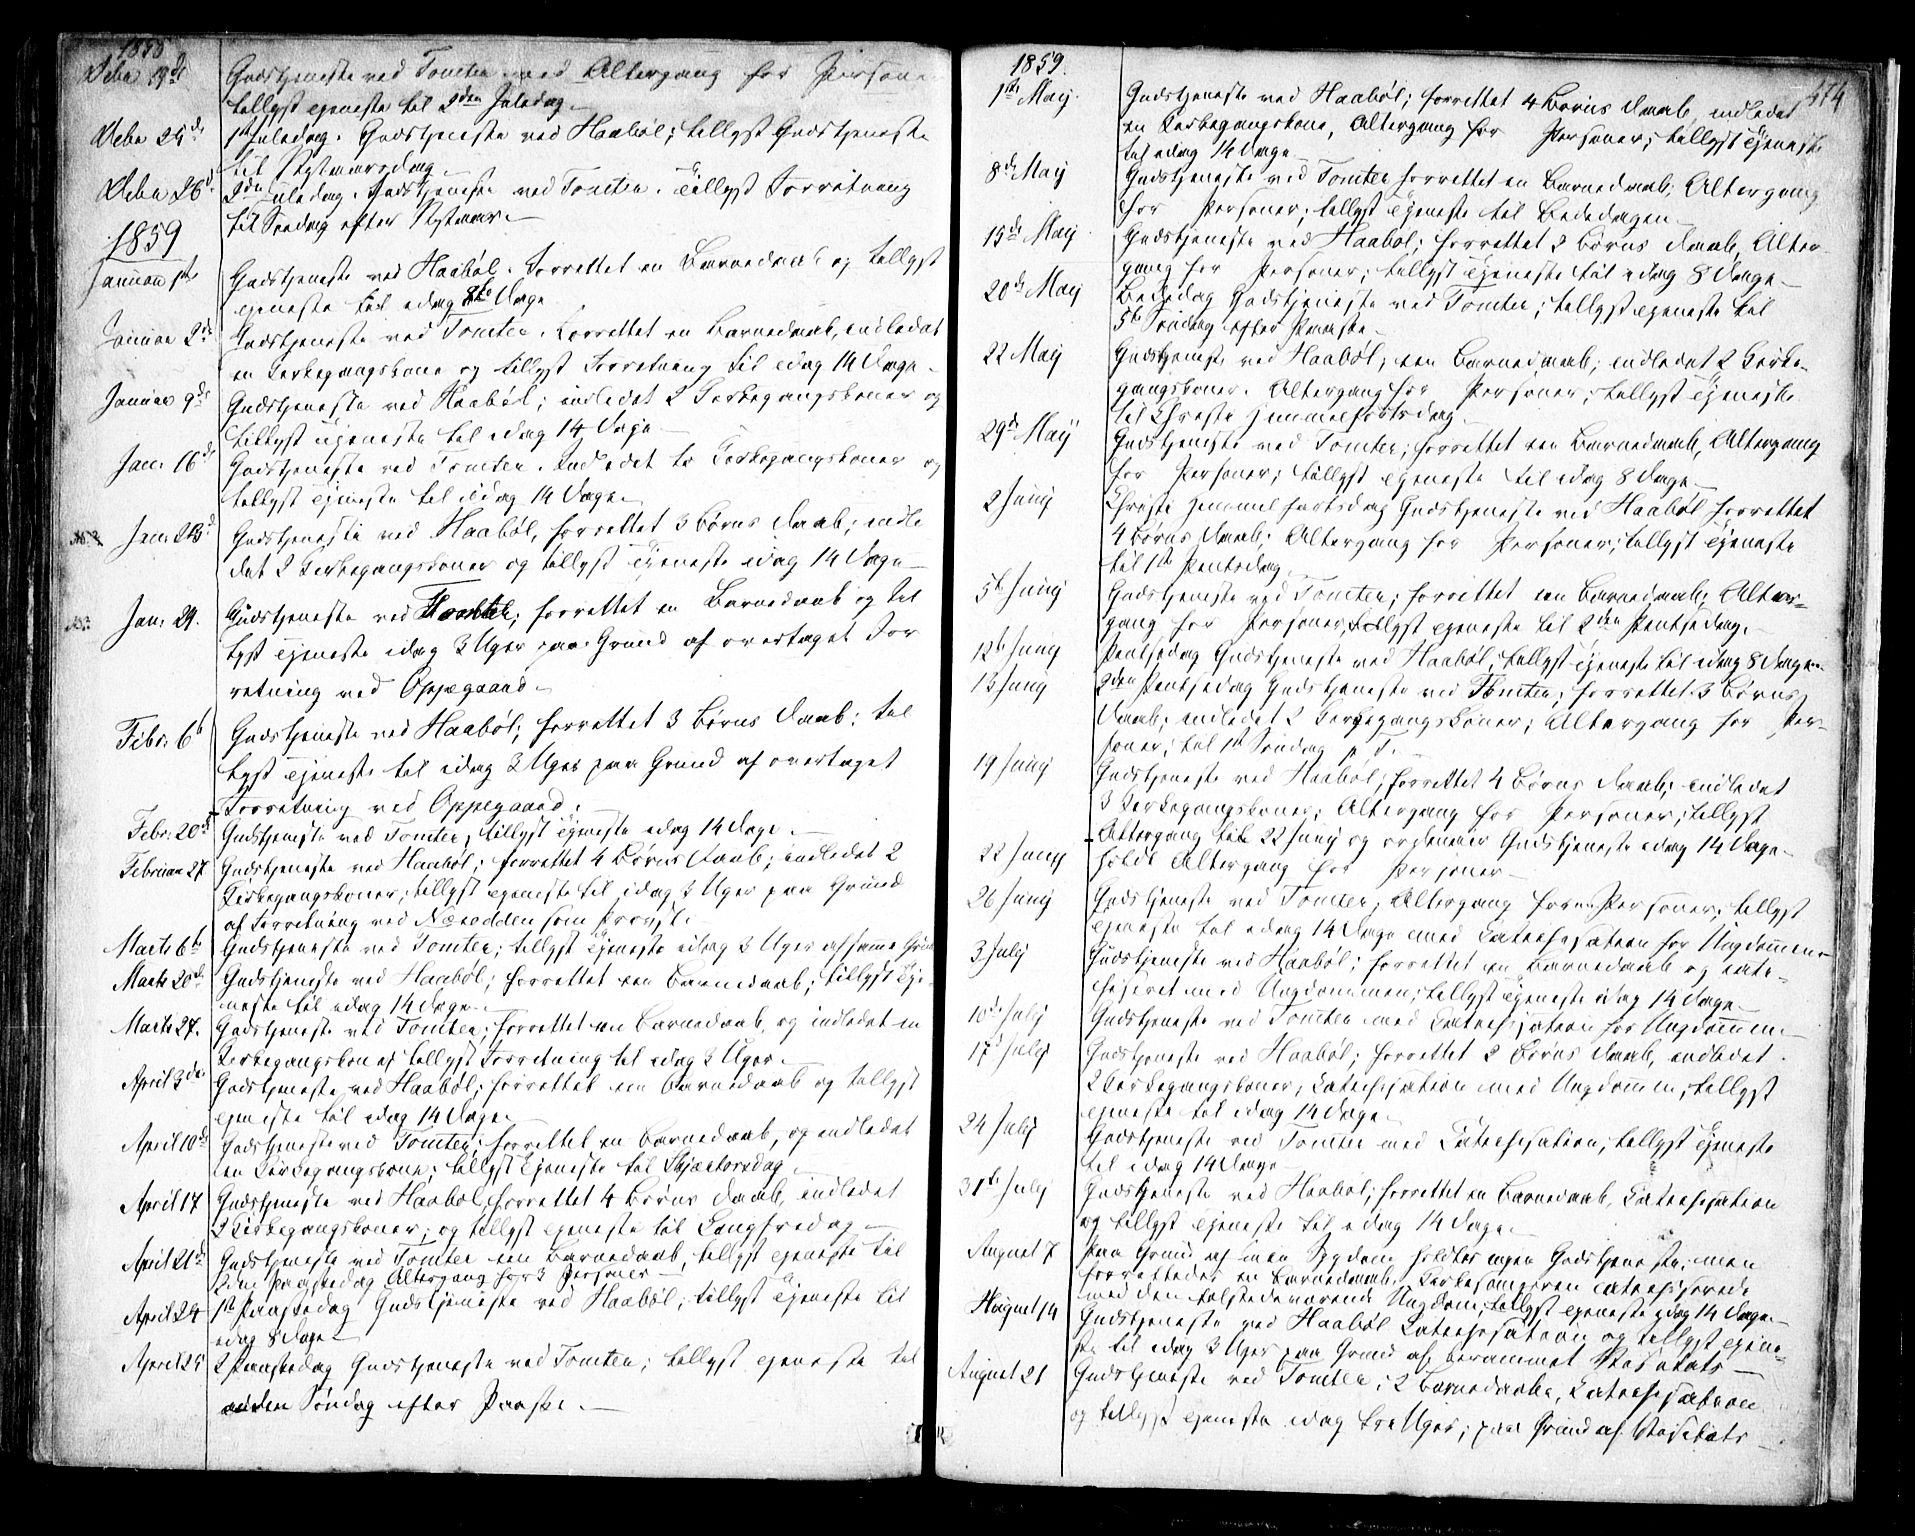 1858
Debr 19de Gudstjeneste ved Tomter med Altergang for Personer
tillyst Tjeneste til 2den Juledag.
Debr 25de 1ste Juledag. Gudstjeneste ved Haabøl; tillyst Gudstjeneste
til Nytaarsdag
Debr 26de 2den Juledag. Gudstjeneste ved Tomter. Tillyst Forretning
til Søndag efter Nytaar.
1859
Januar 1ste Gudstjeneste ved Haabøl. Forrettet en Barnedaab og tillyst
Tjeneste til idag 8te Dage
Januar 2de Gudstjeneste ved Tomter. Forrettet en Barnedaab, indledet
en Kirkegangskone og tillyst Forretning til idag 14 Dage
Januar 9de Gudstjeneste ved Haabøl; indledet 2 Kirkegangskoner og
tillyst Tjeneste til idag 14 Dage
Jan. 16de Gudstjeneste ved Tomter. Indledet to Kirkegangskoner og
tillyst Tjeneste til idag 14 Dage
Jan. 23d Gudstjeneste ved Haabøl, forrettet 3 Børns Daab; indle
det 2 Kirkegangskoner og tillyst Tjeneste idag 14 Dage
Jan. 29. Gudstjeneste ved Tomter; forrettet en Barnedaab og til
lyst Tjeneste idag 3 Uger paa Grund af overtaget For
retning ved Oppegaard
Febr. 6te Gudstjeneste ved Haabøl; forrettet 3 Børns Daab; til
lyst Tjeneste til idag 3 Uger paa Grund af overtaget
Forretning ved Oppegaard.
Febr. 20de Gudstjeneste ved Tomter; tillyst Tjeneste idag 14 Dage.
Februar 27. Gudstjeneste ved Haabøl; forrettet 4 Børns Daab; indledet 2
Kirkegangskoner; tillyst Tjeneste til idag 3 Uger paa Grund
af Forretning ved Næsodden som Provst.
Marts 6te Gudstjeneste ved Tomter; tillyst Tjeneste idag 3 Uger af samme Grund
Marts 20de Gudstjeneste ved Haabøl; forrettet een Barnedaab; tillyst Tje-
neste til idag 14 Dage.
Marts 27. Gudstjeneste ved Tomter; forrettet een Barnedaab, og indledet en
Kirkegangskone; tillyst Forretning til idag 3 Uger.
April 3de. Gudstjeneste ved Haabøl; forrettet een Barnedaab og tillyst
Tjeneste til idag 14 Dage
April 10de Gudstjeneste ved Tomter; forrettet en Barnedaab, og indledet
en Kirkegangskone; tillyst Tjeneste til Skjærtorsdag
April 17 Gudstjeneste ved Haabøl, forrettet 4 Børns Daab, indledet
2 Kirkegangskoner; og tillyst Tjeneste til Langfredag
April 21de Gudstjeneste ved Tomter een Barnedaab, tillyst Tjeneste til
2den Paaskedag Altergang for 3 Personer
April 24 1ste Paaskedag Gudstjeneste ved Haabøl; tillyst Tjeneste til
idag 8 Dage
April 25 2 Paaskedag Gudstjeneste ved Tomter; tillyst Tjeneste til
anden Søndag efter Paaske.
1859.
374
1ste May. Gudstjeneste ved Haabøl; forrettet 4 Børns Daab, indledet
en Kirkegangskone, Altergang for Personer; tillyst Tjeneste
til idag 14 Dage
8de May Gudstjeneste ved Tomter forrettet en Barnedaab; Altergang
for Personer; tillyst Tjeneste til Bededagen
15de May Gudstjeneste ved Haabøl; forrettet 2 Børns Daab, Alter-
gang for Personer; tillyst Tjeneste til idag 8 Dage
20de May Bededag Gudstjeneste ved Tomter; tillyst Tjeneste til
5te Søndag efter Paaske.
22 May Gudstjeneste ved Haabøl; een Barnedaab; indledet 2 Kirke-
gangskoner. Altergang for Personer; tillyst Tjeneste
til Christi Himmelfartsdag
29de May Gudstjeneste ved Tomter; forrettet een Barnedaab, Altergang
for Personer; tillyst Tjeneste til idag 8 Dage
2 Juny Christi Himmelfartsdag Gudstjeneste ved Haabøl forrettet
4 Børns Daab; Altergang for Personer; tillyst Tjeneste
til 1ste Pintsdag
5te Juny Gudstjeneste ved Tomter; forrettet een Barnedaab; Alter-
gang for Personer, tillyst Tjeneste til 2den Pintsedag.
12te Juny Pintsedag Gudstjeneste ved Haabøl; tillyst Tjeneste til idag 8 Dage
13 Juny 2den Pintsedag Gudstjeneste ved Tomter; forrettet 3 Børns
Daab; indledet 2 Kirkegangskoner; Altergang for Per-
soner; til 1ste Søndag p. T.
19 Juny Gudstjeneste ved Haabøl; forrettet 4 Børns Daab; indledet
3 Kirkegangskoner; Altergang for Personer; tillyst
Altergang til 22 Juny og ordinair Gudstjeneste idag 14 Dage
22 Juny holdt Altergang for Personer
26 Juny Gudstjeneste ved Tomter; Altergang for Personer; tillyst
Tjeneste til idag 14 Dage med Catechisation for Ungdommen
3 July Gudstjeneste ved Haabøl; forrettet en Barnedaab og cate-
chiseret med Ungdommen; tillyst Tjeneste idag 14 Dage
10de July Gudstjeneste ved Tomter med Catechisation for Ungdommen
17d July Gudstjeneste ved Haabøl; forrettet 2 Børns Daab, indledet
2 Kirkegangskoner; Catechisation med Ungdommen; tillyst
Tjeneste til idag 14 Dage
24 July Gudstjeneste ved Tomter med Catechisation; tillyst Tjeneste
til idag 14 Dage
31te July Gudstjeneste ved Haabøl; forrettet en Barnedaab, Catechisation
og tillyst Tjeneste til idag 14 Dage.
August 7 Paa Grund af min Sygdom holdtes ingen Gudstjeneste; men
forrettedes en Barnedaab. Kirkesangeren catechiserede
med den tilstedeværende Ungdom; tillyst Tjeneste idag 14 Dage
August 14 Gudstjeneste ved Haabøl Catechisation og tillyst Tjene-
ste til idag 3 Uger paa Grund af berammet Visitats
August 21 Gudstjeneste ved Tomter; 2 Barnedaaber, Catechisation
og tillyst Tjeneste idag tre Uger; paa Grund af Visitats